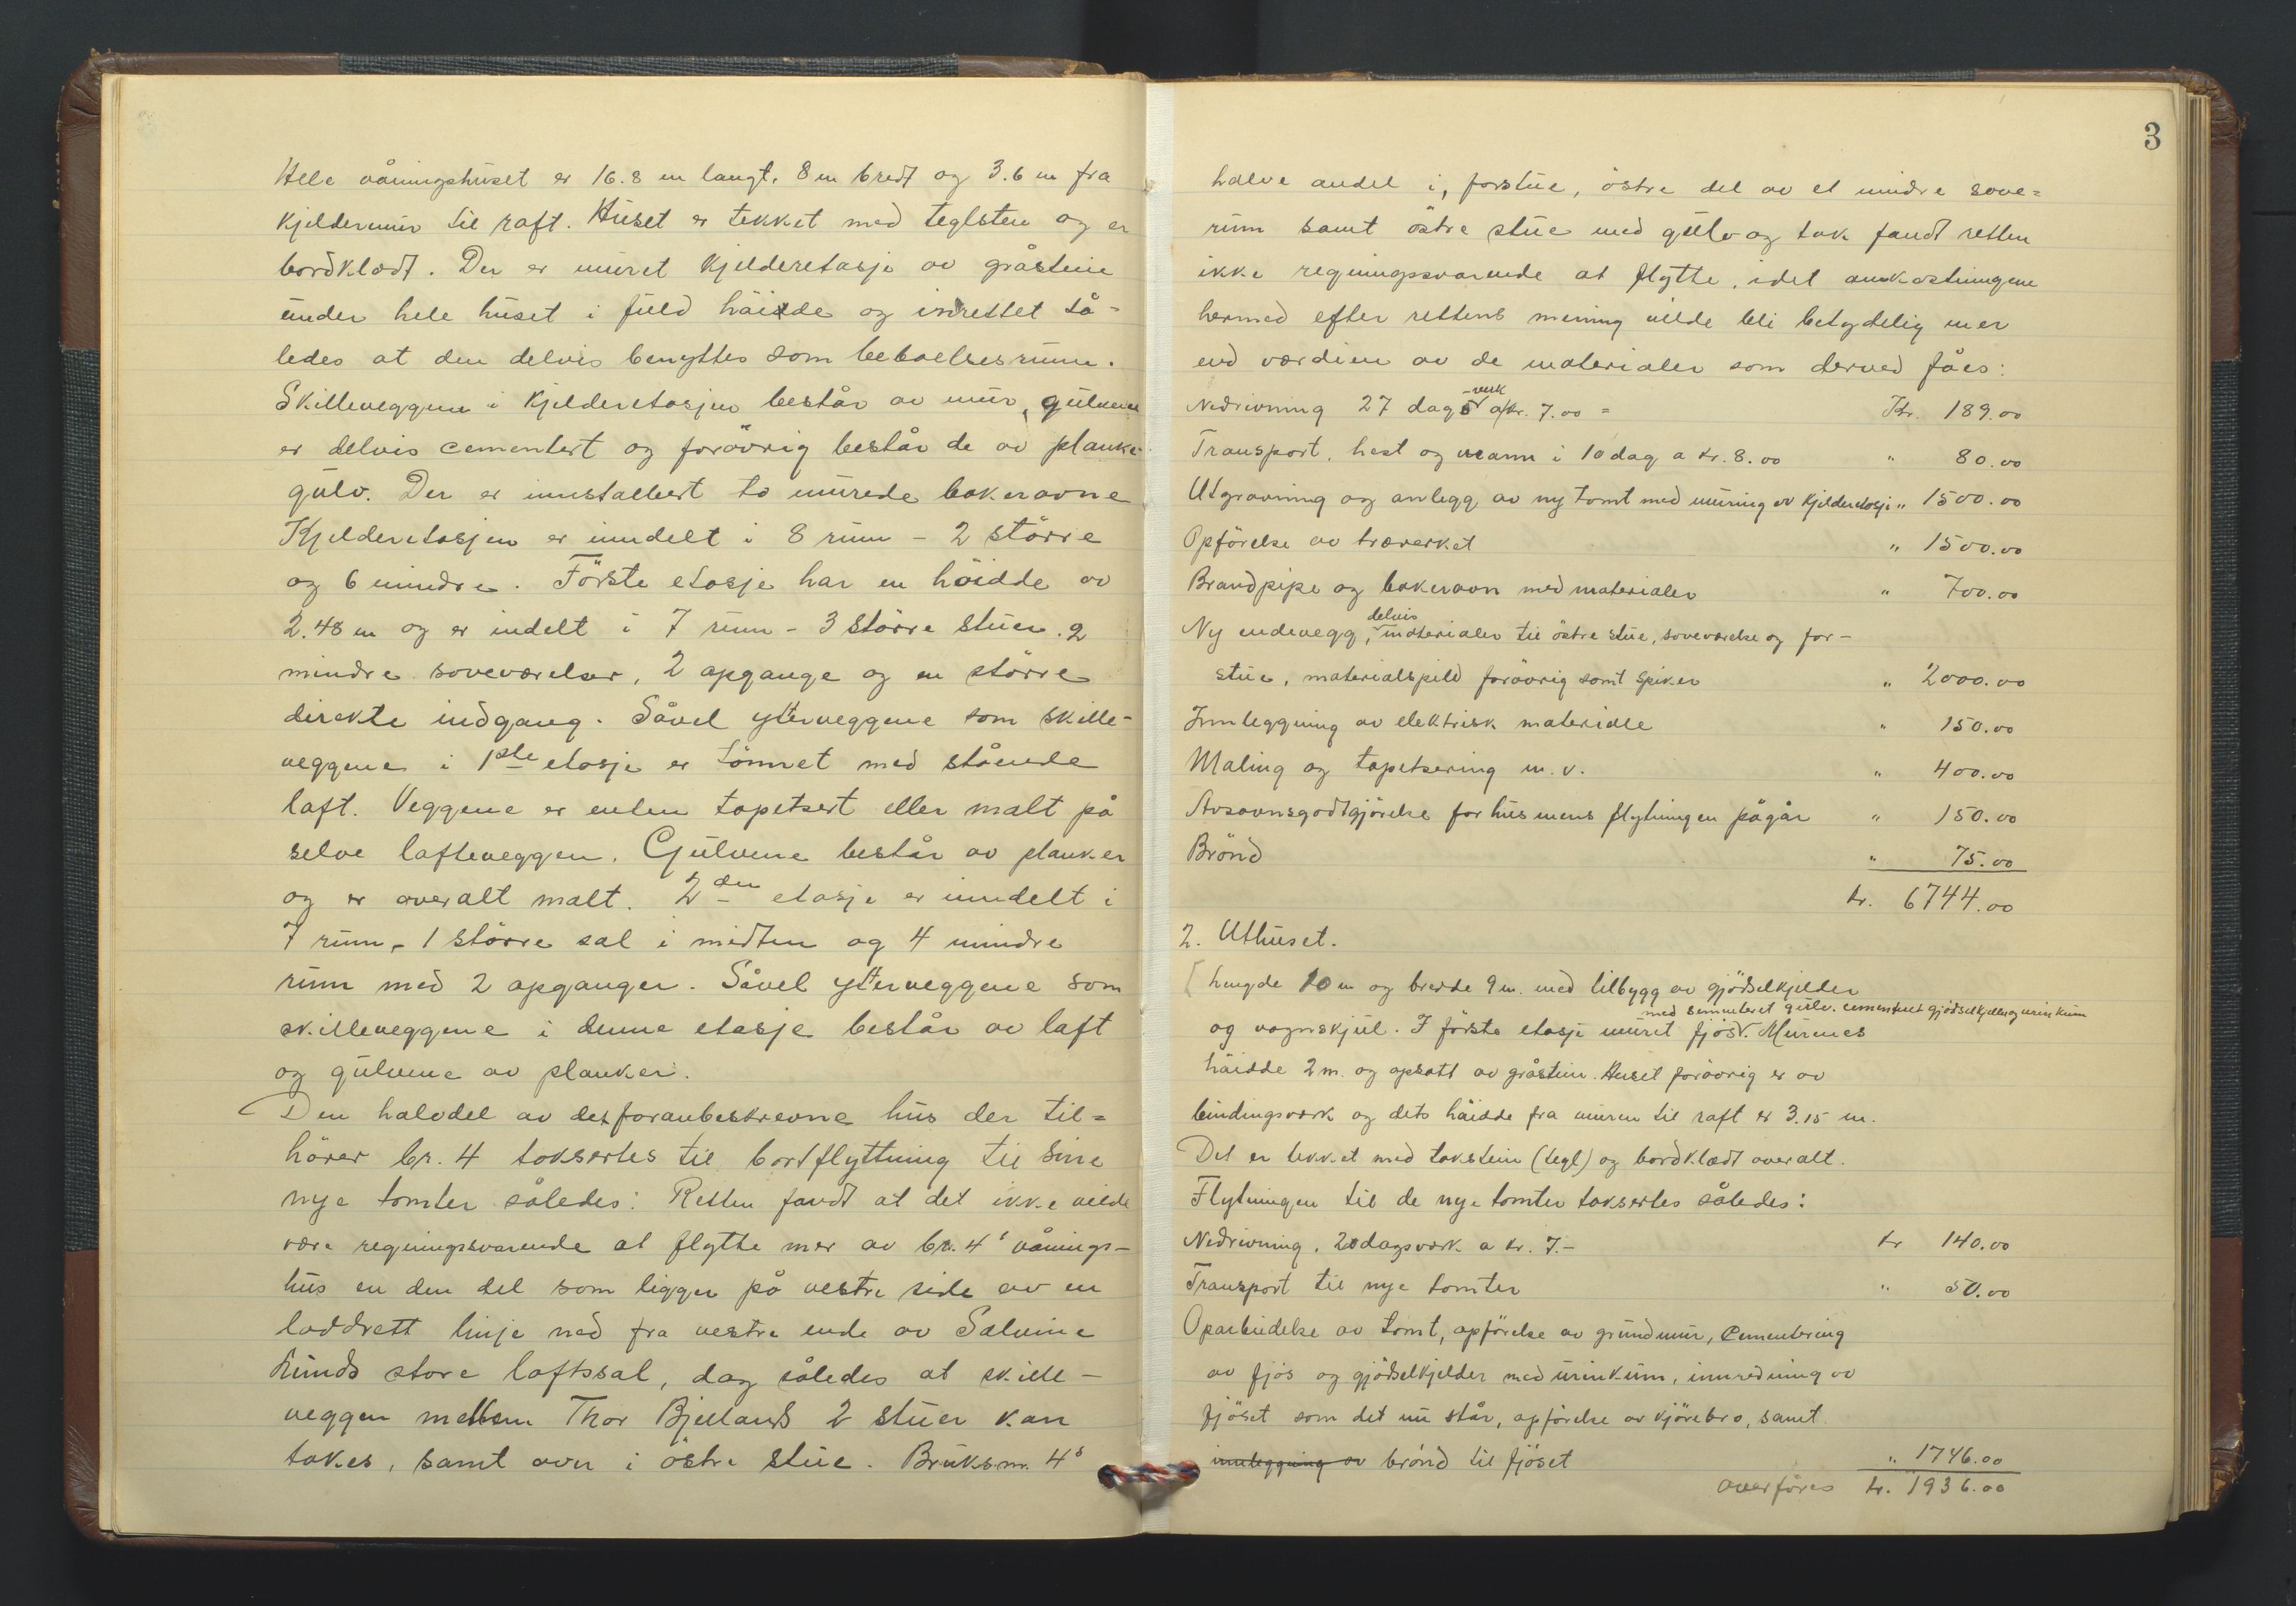 Hele våningshuset er 16.8 m langt, 8 m bredt og 3.6 m fra
kjeldermur til raft. Huset er tekket med teglsten og er
bordklædt. Der er muret kjelderetasje av gråstein
under hele huset i fuld høidde og inrettet så-
ledes at den delvis benyttes som beboelsesrum.
Skilleveggene i kjelderetasjen består av mur, gulvene
er delvis cementert og forøvrig består de av planke-
gulv. Der er innstallert to murede bakerovne
Kjelderetasjen er inndelt i 8 rum - 2 større
og 6 mindre. Første etasje har en høidde av
2.48 m og er indelt i 7 rum - 3 større stuer. 2
mindre soveværelser, 2 opgange og en større
direkte indgang. Såvel ytterveggene som skille-
veggene i 1ste etasje er tømret med stående
laft. Veggene er enten tapetsert eller malt på
selve lafteveggen. Gulvene består av planker
og er overalt malt. 2den etasje er inndelt i
7 rum, 1 større sal i midten og 4 mindre
rum med 2 opganger. Såvel ytterveggene som
skilleveggene i denne etasje består av laft
og gulvene av planker.
Den halvdel av det foranbeskrevne hus der til=
hører br. 4 taksertes til bortflyttning til sine
nye tomter således: Retten fandt at det ikke vilde
være regningsvarende at flytte mer av br. 4s vånings-
hus en den del som ligger på vestre side av en
loddrett linje ned fra vestre ende av Salvine
Lunds store loftssal, dog således at skille-
veggen mellem Thor Bjellands 2 stuer kan
takes, samt over i østre stue. Bruksnr. 4s
3
halve andel i, forstue, østre del av et mindre sove=
rum samt østre stue med gulv og tak fandt retten
ikke regningssvarende at flytte, idet omkostningene
hermed efter rettens mening vilde bli betydelig mer
end værdien av de materialer som derved fåes:
Nedrivning 27 dagsverk a kr. 7.00 = Kr. 189.00
Transport, hest og mann i 10 dag a kr. 8.00 " 80.00
Utgravning og anlegg av ny tomt med muring av kjelderetasje " 1500.00
Opførelse av træverket " 1500.00
Brandpipe og bakerovn med materialer " 700.00
Ny endevegg, delvis materialer til østre stue, soveværelse og for-
stue, materialspild forøvrig samt spiker " 2000.00
Innleggning av elektrisk materiale " 150.00
Maling og tapetsering m.v. " 400.00
Avsavnsgodtgjørelse for hus mens flytningen pågår " 150.00
Brønd " 75.00
kr. 6744.00
2. Uthuset.
Lengde 10 m og bredde 9 m. med tilbygg av gjødselkjelder
med sementeret gulv. cementeret gjødselkjeller og urinkum
og vognskjul. I første etasje muret fjøs. Murenes
høidde 2 m. og opsatt av gråstein. Huset forøvrig er av
bindingsverk og dets høidde fra muren til raft er 3.15 m.
Det er tekket med takstein (tegl) og bordklædt overalt.
Flytningen til de nye tomter taksertes således:
Nedrivning, 20 dagsverk a kr. 7.- kr 140.00
Transport til nye tomter " 50.00
Oparbeidelse av tomt, opførelse av grundmur, cementering
av fjøs og gjødselkjelder med urinkum, innredning av
fjøset som det nu står, opførelse av kjørebro, samt
innleggning av brønd til fjøset " 1746.00
overføres kr. 1936.00